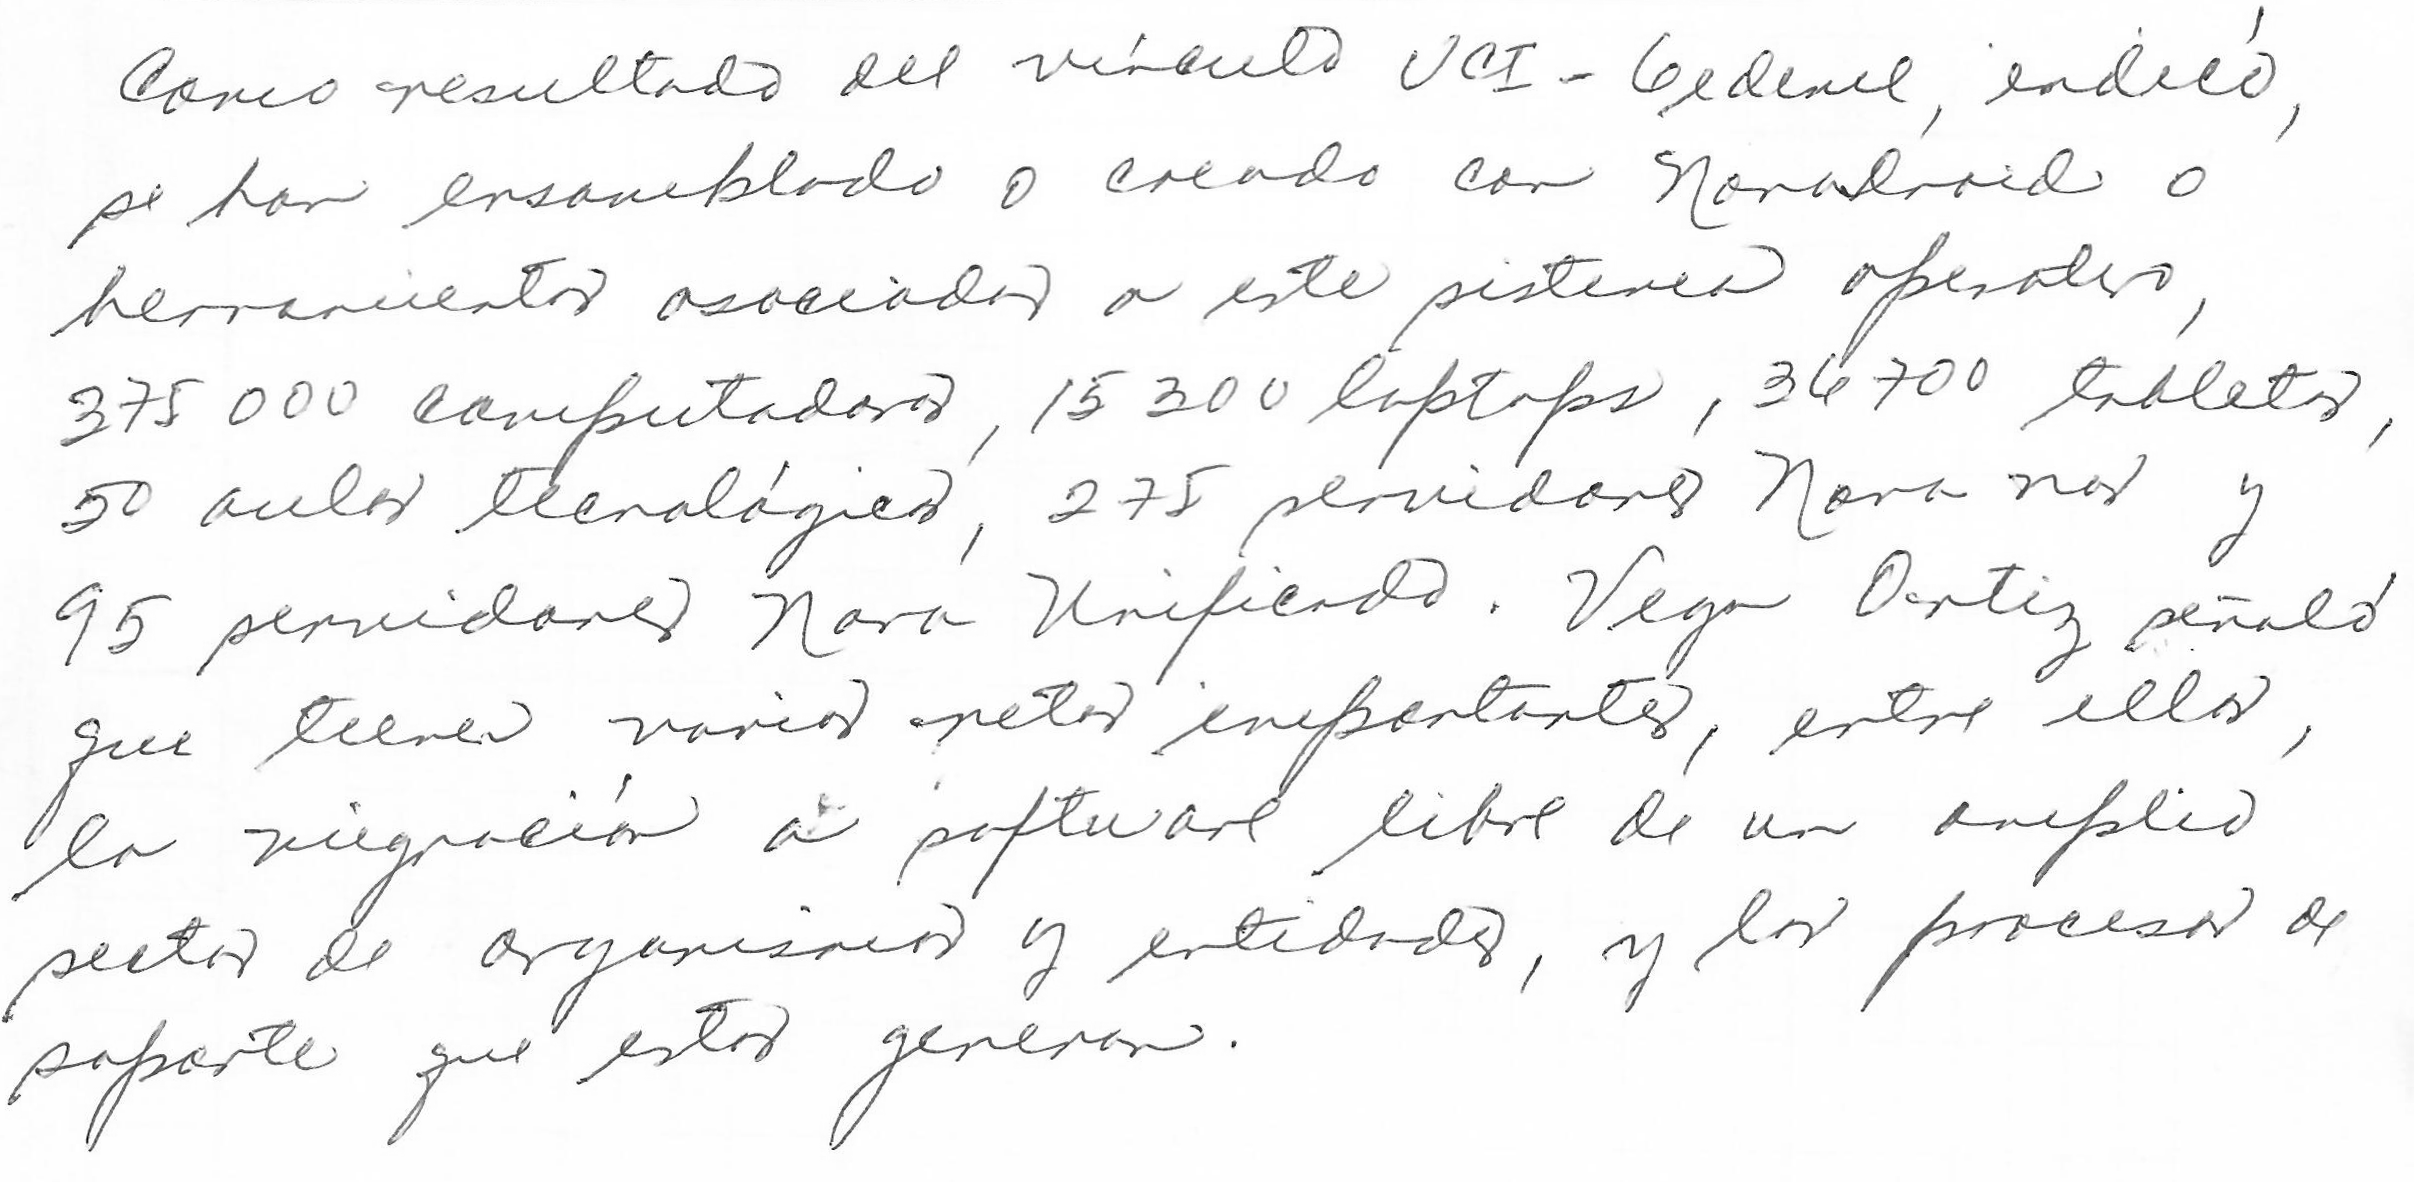 Como resultado del vínculo UCI - Gedeme, indicó,
se han ensamblado o creado con Novadroid o
herramientas asociadas a este sistema operativo,
375 000 computadoras, 15 300 laptops, 36 700 tabletas,
50 aulas tecnológicas, 275 servidores Nova nas y
95 servidores Nova Unificado. Vega Ortiz señaló
que tienen varios retos importantes, entre ellos,
la migración a software libre de un amplio
sector de organismos y entidades, y los procesos de
soporte que estos generan.